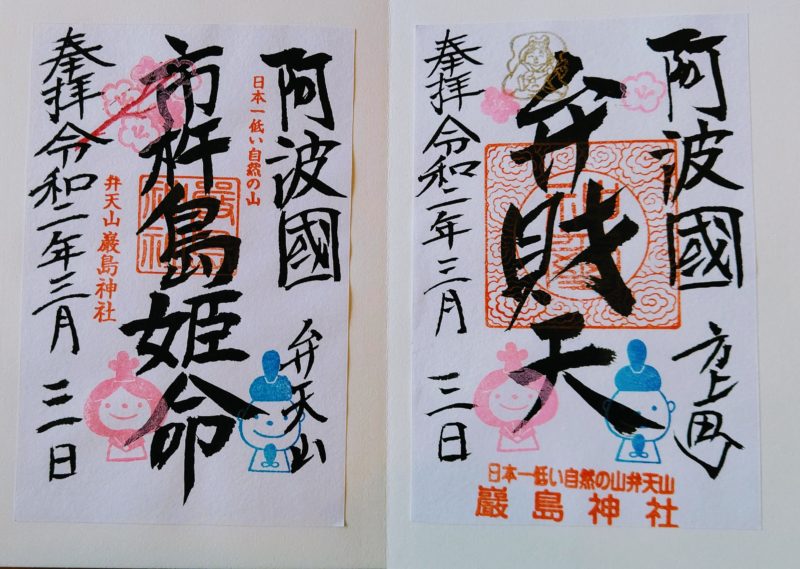 阿波國
方上町
弁財天
奉拝 令和二年三月三日
日本一低い自然の山弁天山
巖島神社
阿波國
弁天山
日本一低い自然の山
市杵島姫命
嚴島神社
弁天山 巖島神社
奉拝 令和二年三月三日